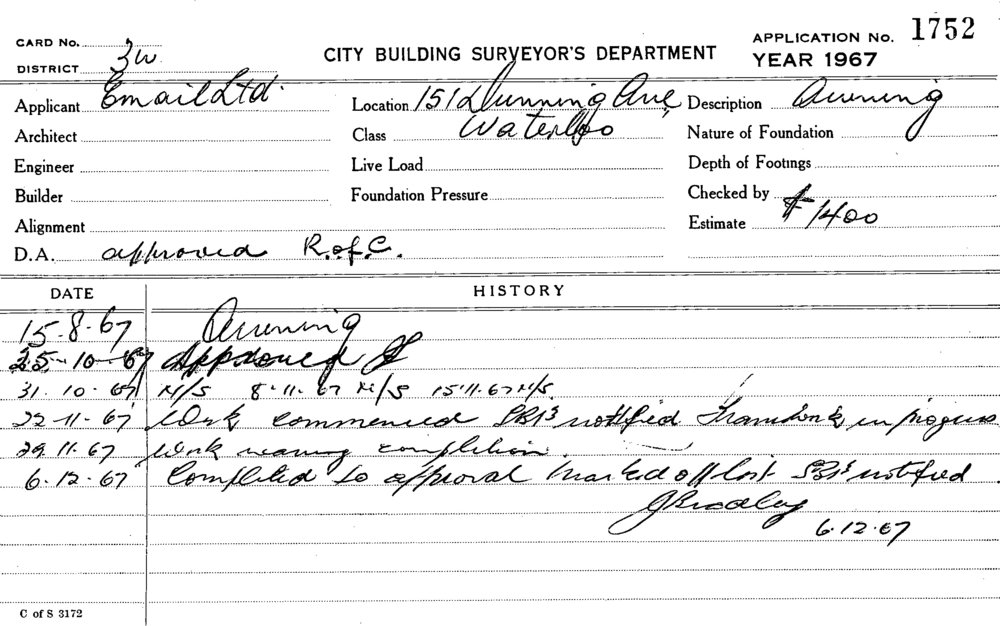 CARD No. CITY BUILDING SURVEYOR'S DEPARTMENT APPLICATION No. 1752
DISTRICT 3W YEAR 1967
Applicant Email Ltd. Location 151 Dunning Ave, Description Awning
Architect Class Waterloo Nature of Foundation
Engineer Live Load Depth of Footings
Builder Foundation Pressure Checked by
Alignment Estimate $1400
D.A. approved R.of.C.
DATE HISTORY
15-8-67 Awning
25-10-67 Approved
31.10.67 N/S 8-11-67 N/S 15.11.67 N/S.
22-11-67 Work commenced notified Framework in progress
29.11.67 Work nearing completion.
6.12.67 Completed to approval Marked off list notified
JBradley
6.12.67
C of S 3172